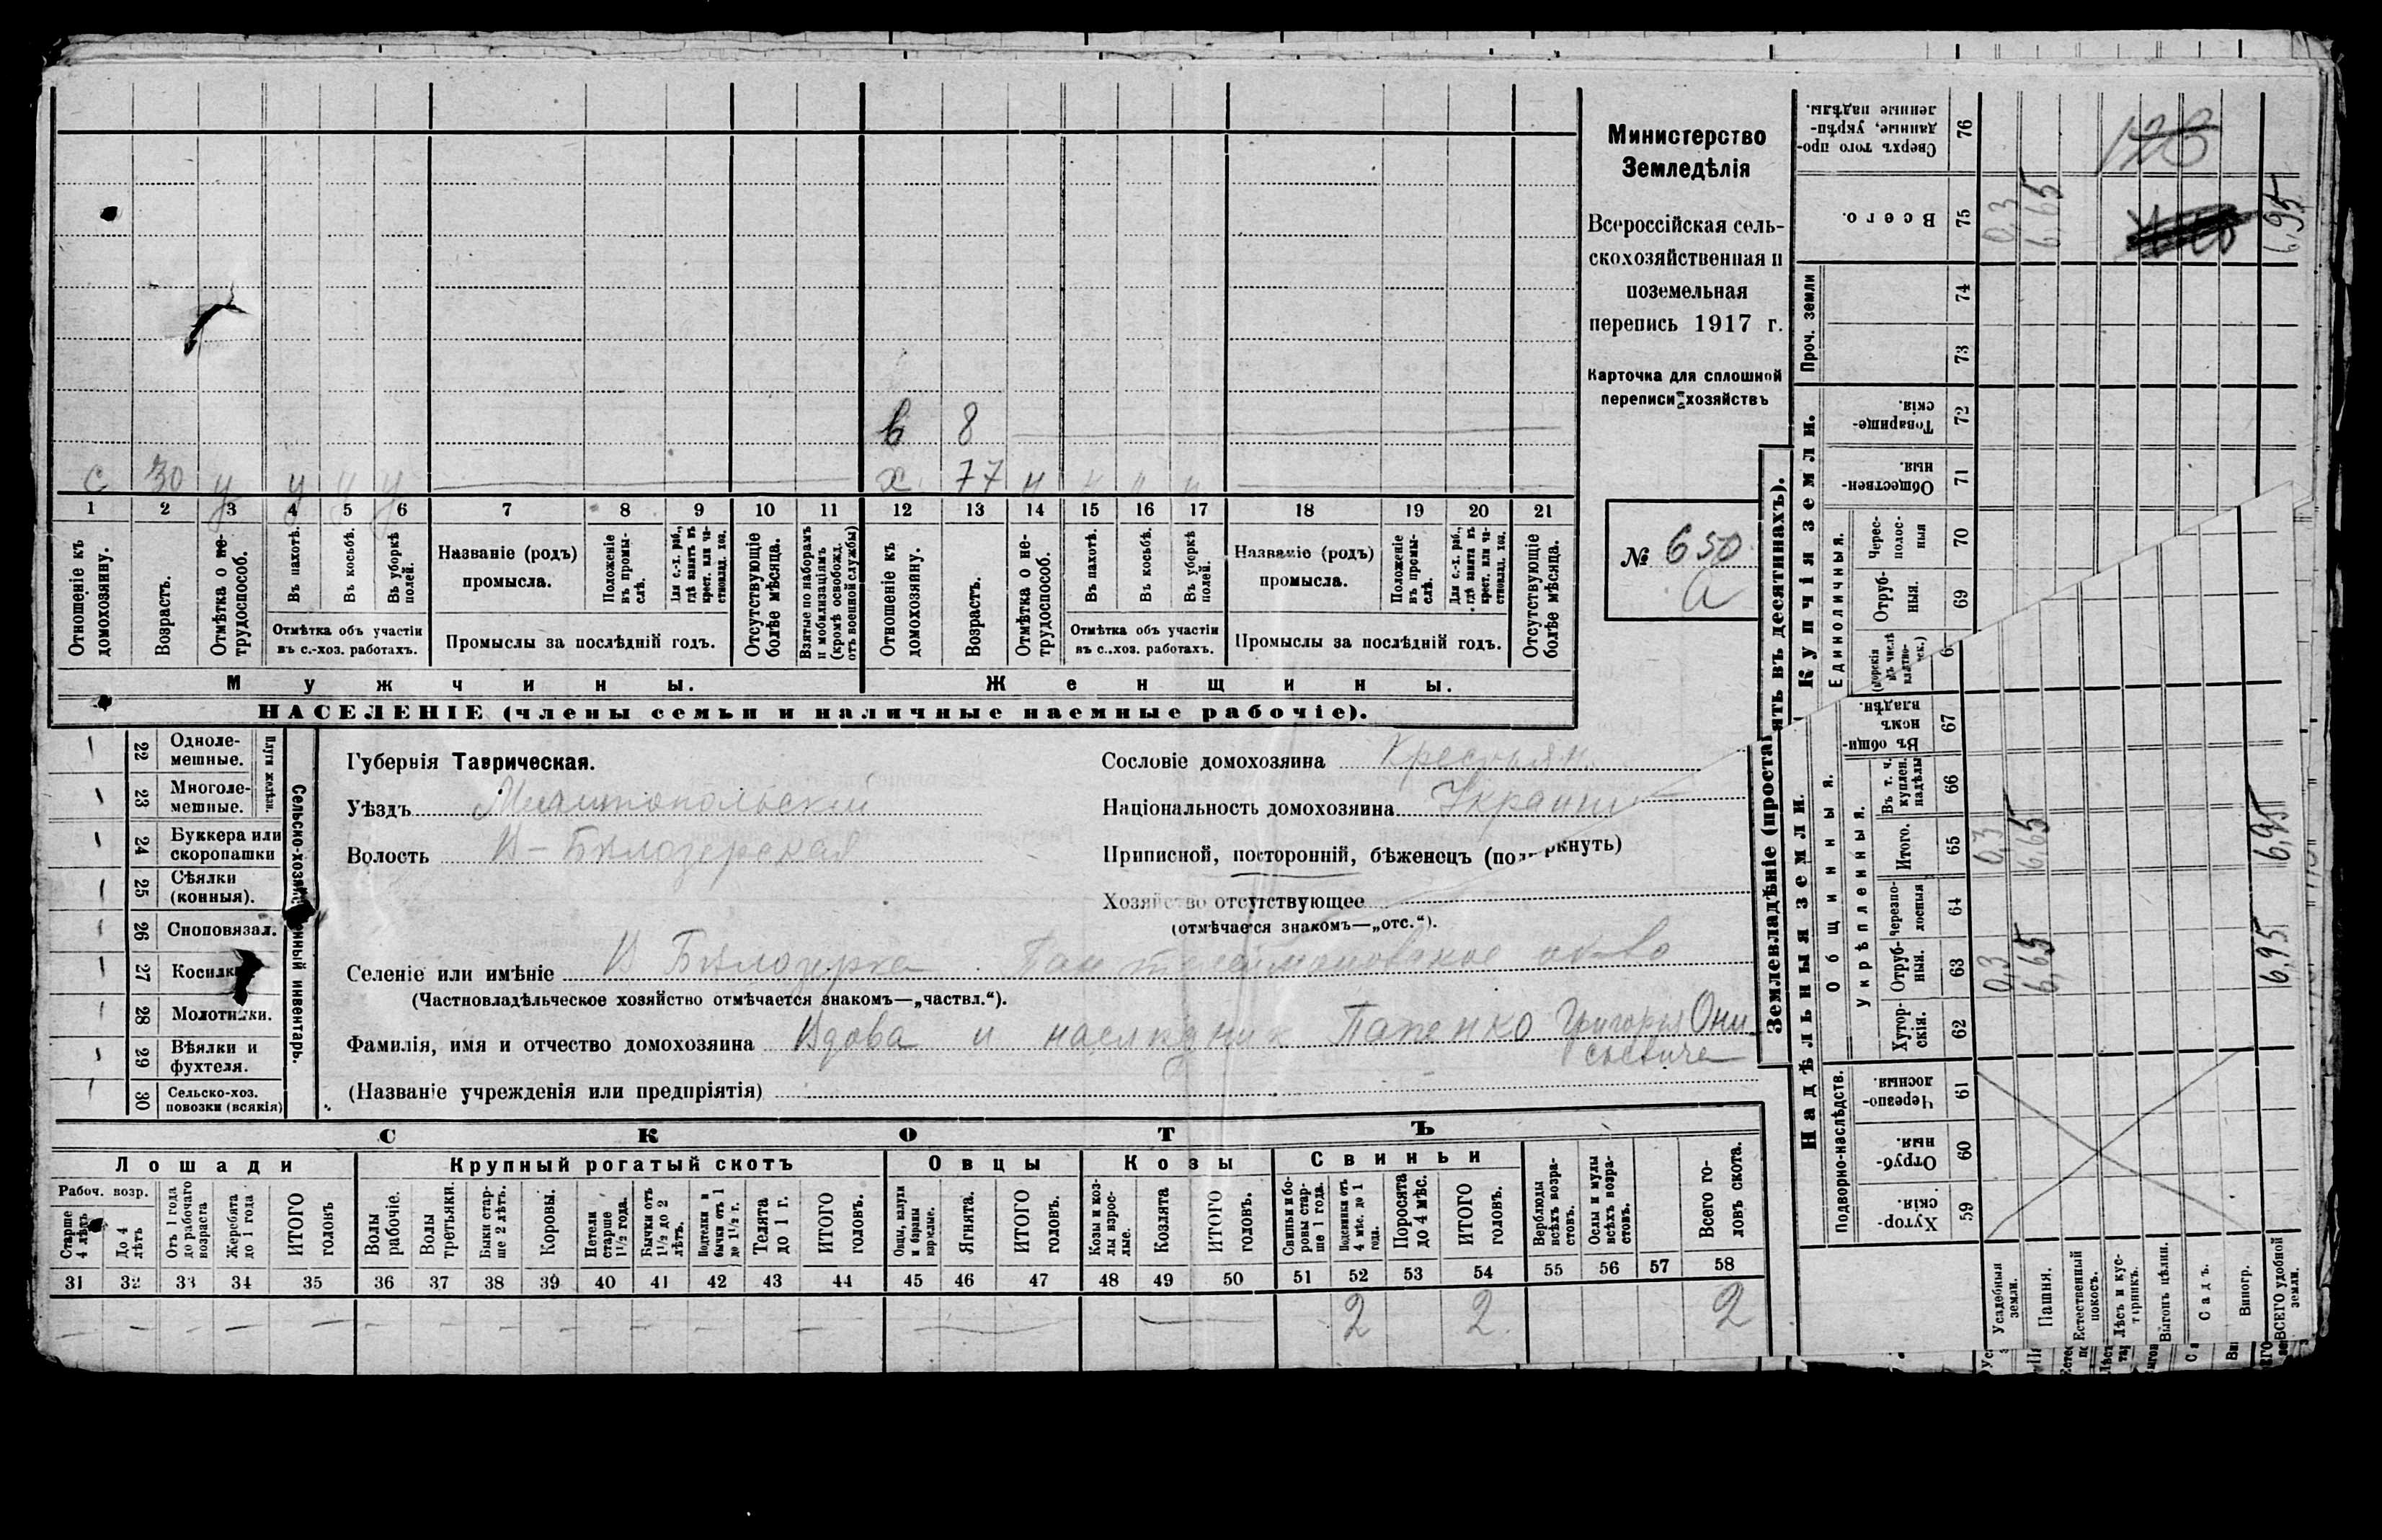 в 8
с 30 у у у у х 77 н н н н
1 2 3 4 5 6 7 8 9 10 11 12 13 14 15 16 17 18 19 20 21
Отношеніе къ домохозяину.
Возрастъ.
Отмѣтка о не-трудоспособ.
Въ пахотѣ.
Въ косьбѣ.
Въ уборкѣ полей.
Отмѣтка объ участіи
въ с.-хоз. работахъ.
Названіе (родъ)
промысла.
Положеніе въ промы-слѣ.
Для с.-х. раб., гдѣ занятъ въ крест. или ча-стновлад. хоз.
Промыслы за послѣдній годъ.
Отсутствующіе болѣе мѣсяца.
Взятые по наборамъ и мобилизаціямъ (кромѣ освобожд. отъ военной службы)
Отношеніе къ домохозяину.
Возрастъ.
Отмѣтка о не-трудоспособ.
Въ пахотѣ.
Въ косьбѣ.
Въ уборкѣ полей.
Отмѣтка объ участіи
въ с.-хоз. работахъ.
Названіе (родъ)
промысла.
Положеніе въ промы-слѣ.
Для с.-х. раб., гдѣ занята въ крест. или ча-стновлад. хоз.
Промыслы за послѣдній годъ.
Отсутствующіе болѣе мѣсяца.
Мужчины. Женщины.
НАСЕЛЕНІЕ (члены семьи и наличные наемные рабочіе).
Министерство
Земледѣлія
Всероссійская сель-
скохозяйственная и
поземельная
перепись 1917 г.
Карточка для сплошной
переписи хозяйствъ
№ 650
а
22 Одноле-мешные.
23 Многоле-мешные.
Плуги желѣзн.
24 Буккера или скоропашки
25 Сѣялки (конныя).
26 Сноповязал.
27 Косилки
28 Молотилки.
29 Вѣялки и фухтеля.
30 Сельско-хоз. повозки (всякія)
Губернія Таврическая.
Уѣздъ Мелитопольскій
Волость В-Бѣлозерская
Сословіе домохозяина Крестьян.
Національность домохозяина Украин
Приписной, посторонній, бѣженецъ (подчеркнуть)
Хозяйство отсутствующее
(отмѣчается знакомъ—„отс.“).
Селеніе или имѣніе В Бѣлозерка
(Частновладѣльческое хозяйство отмѣчается знакомъ—„частвл.“).
Фамилія, имя и отчество домохозяина Вдова и наслѣдник Папенко Григорія Они
сьевича
(Названіе учрежденія или предпріятія)
СКОТЪ
Лошади Крупный рогатый скотъ Овцы Козы Свиньи
Рабоч. возр.
Старше 4 лѣтъ
До 4 лѣтъ
Отъ 1 года до рабочаго возраста
Жеребята до 1 года
ИТОГО головъ
Волы рабочіе.
Волы третьяки.
Быки стар-ше 2 лѣтъ.
Коровы.
Нетели старше 1½ года.
Бычки отъ 1½ до 2 лѣтъ.
Подтелки и бычки отъ 1 до 1½ г.
Телята до 1 г.
ИТОГО головъ.
Овцы, валухи и бараны взрослые.
Ягнята.
ИТОГО головъ.
Козы и коз-лы взрос-лые.
Козлята
ИТОГО головъ.
Свиньи и бо-ровы стар-ше 1 года.
Подсвинки отъ 4 мѣс. до 1 года.
Поросята до 4 мѣс.
ИТОГО головъ.
Верблюды всѣхъ возра-стовъ.
Ослы и мулы всѣхъ возра-стовъ.
Всего го-ловъ скота.
31 32 33 34 35 36 37 38 39 40 41 42 43 44 45 46 47 48 49 50 51 52 53 54 55 56 57 58
2 2 2
Надѣльныя земли.
Купчія земли.
Проч. земли
Подворно-наслѣдств.
Общинныя.
Укрѣпленныя.
Единоличныя.
Хутор-скія. 59
Отруб-ныя. 60
Черезпо-лосныя. 61
Хутор-скія. 62
Отруб-ныя. 63
Черезпо-лосныя 64
Итого. 65
Въ т. ч. куплен. надѣлы 66
Въ общи-номъ владѣн. 67
Отруб-ныя. 69
Черес-полос-ныя 70
Обществен-ныя. 71
Товарище-скія. 72
73
74
Всего. 75
Сверхъ того про-данные, укрѣп-ленные надѣлы. 76
Усадебныя земли. 0,3 0,3 0,3
Пашня. 6,65 6,65 6,65
Естественный покосъ.
Лѣсъ и кус-тарникъ.
Выгонъ цѣлин.
Садъ.
Виногр.
ВСЕГО удобной земли. 6,95 6,95 6,95